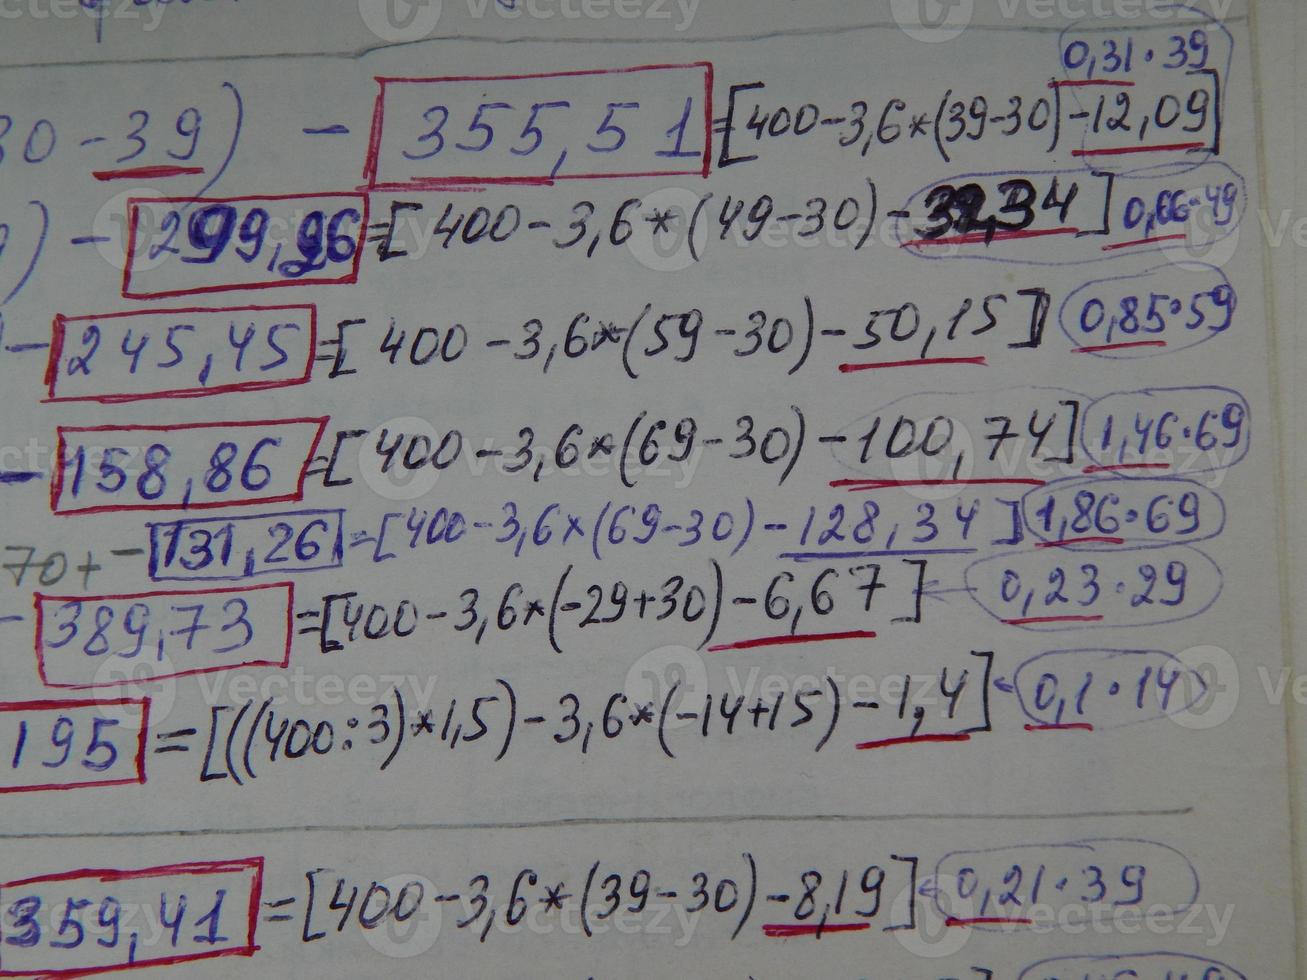 0,31·39
30-39) - 355,51 =[400-3,6*(39-30)-12,09]
9) - 299,96 =[400-3,6*(49-30)-32,34] 0,66·49
- 245,45 =[400-3,6*(59-30)-50,15] 0,85·59
- 158,86 =[400-3,6*(69-30)-100,74] 1,46·69
70+ - 131,26 =[400-3,6*(69-30)-128,34] 1,86·69
- 389,73 =[400-3,6*(-29+30)-6,67] 0,23·29
195 =[((400:3)*1,5)-3,6*(-14+15)-1,4] 0,1·14
359,41 =[400-3,6*(39-30)-8,19] 0,21·39